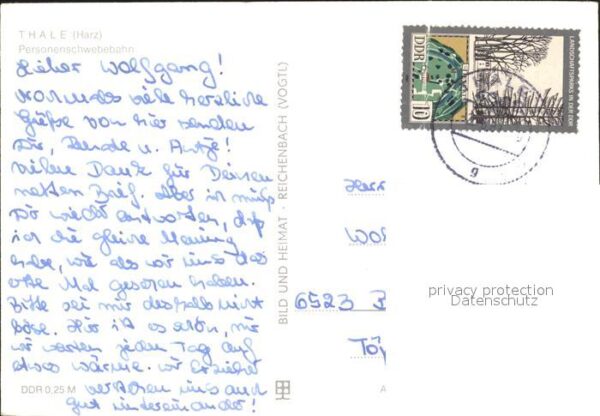 THALE (Harz)
Personenschwebebahn
Lieber Wolfgang!
nochmals viele herzliche
Grüße von hier senden
Dir, Renate u. Antje!
Vielen Dank für Deinen
netten Brief. Aber ich muß
Dir wieder antworten, daß
ich die gleiche Meinung
habe, wie als wir uns das
Mal gesehen haben.
Bitte sei mir deshalb nicht
böse. Hier ist es schön, nur
wir warten jeden Tag auf
etwas Wärme. Wir Erzieher
verstehen uns auch
gut untereinander!
DDR 0,25 M
BILD UND HEIMAT · REICHENBACH (VOGTL)
DDR
10
LANDSCHAFTSPARKS IN DER DDR
g
Herr
Wol
6523
privacy protection
Datenschutz
A